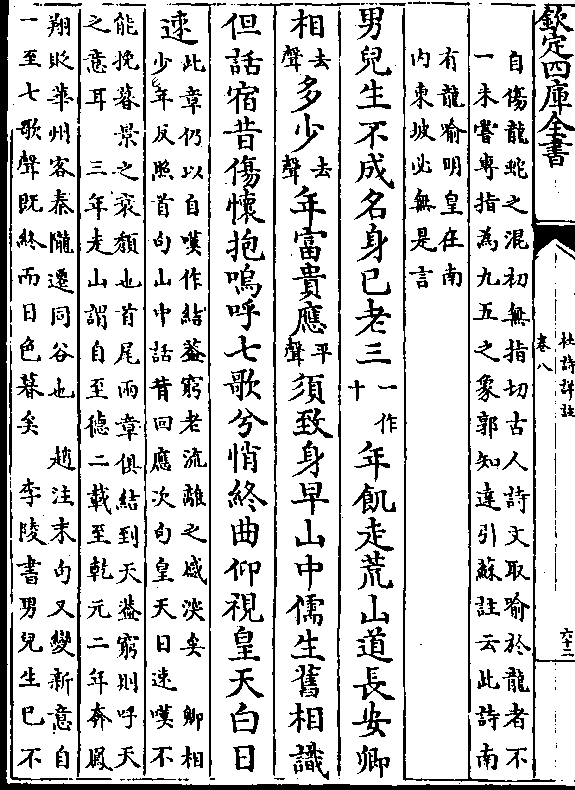 欽定四庫全書
杜詩詳註
卷八
六十二
自傷龍蛇之混初無指切古人詩文取喻於龍者不
一未嘗專指為九五之象郭知達引蘇註云此詩南
有龍喻明皇在南
内東坡必無是言
男兒生不成名身已老三一作十年飢走荒山道長安卿
相去聲多少去聲年富貴應平聲須致身早山中儒生舊相識
但話宿昔傷懷抱嗚呼七歌兮悄終曲仰視皇天白日
速
此章仍以自嘆作結蓋窮老流離之感深矣 卿相
少年反照首句山中話昔回應次句皇天日速嘆不
能挽暮景之衰頹也首尾兩章俱結到天蓋窮則呼天
之意耳 三年走山謂自至德二載至乾元二年奔鳳
翔貶華州客秦隴遷同谷也 趙注末句又變新意自
一至七歌聲既終而日色暮矣 李陵書男兒生已不